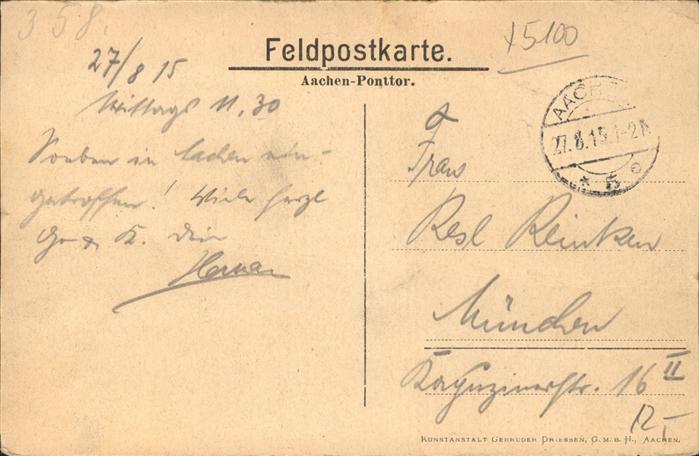 358.
Feldpostkarte.
Aachen-Ponttor.
x5100
27/8 15
Mittags 11.30
Soeben in Aachen ein-
getroffen! Viele herzl
Gr & K. Dein
Herman
AACHEN
27.8.15.1-2N
* 5 e
Frau
Resl Reinken
München
Kapuzinerstr. 16 II
12,-
KUNSTANSTALT GEBRÜDER DRIESSEN, G.M.B.H., AACHEN.